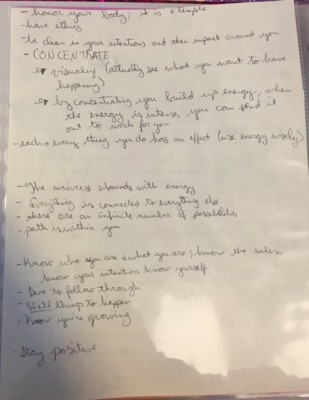 - honor your body; it is a temple
- have ethics
- be clear in your intentions and their impact around you
- CONCENTRATE
visualize (actually see what you want to have
happening)
by concentrating you build up energy, when
the energy is intense, you can send it
out to work for you
- each & every thing you do has an effect (use energy wisely)
- The universe abounds with energy
- Everything is connected to everything else
- there are an infinite number of possibilities
- path is within you
- Know who you are & what you are; know the rules
know your intention know yourself
- Dare to follow through
- Will things to happen
- Know you're growing
- Stay positive